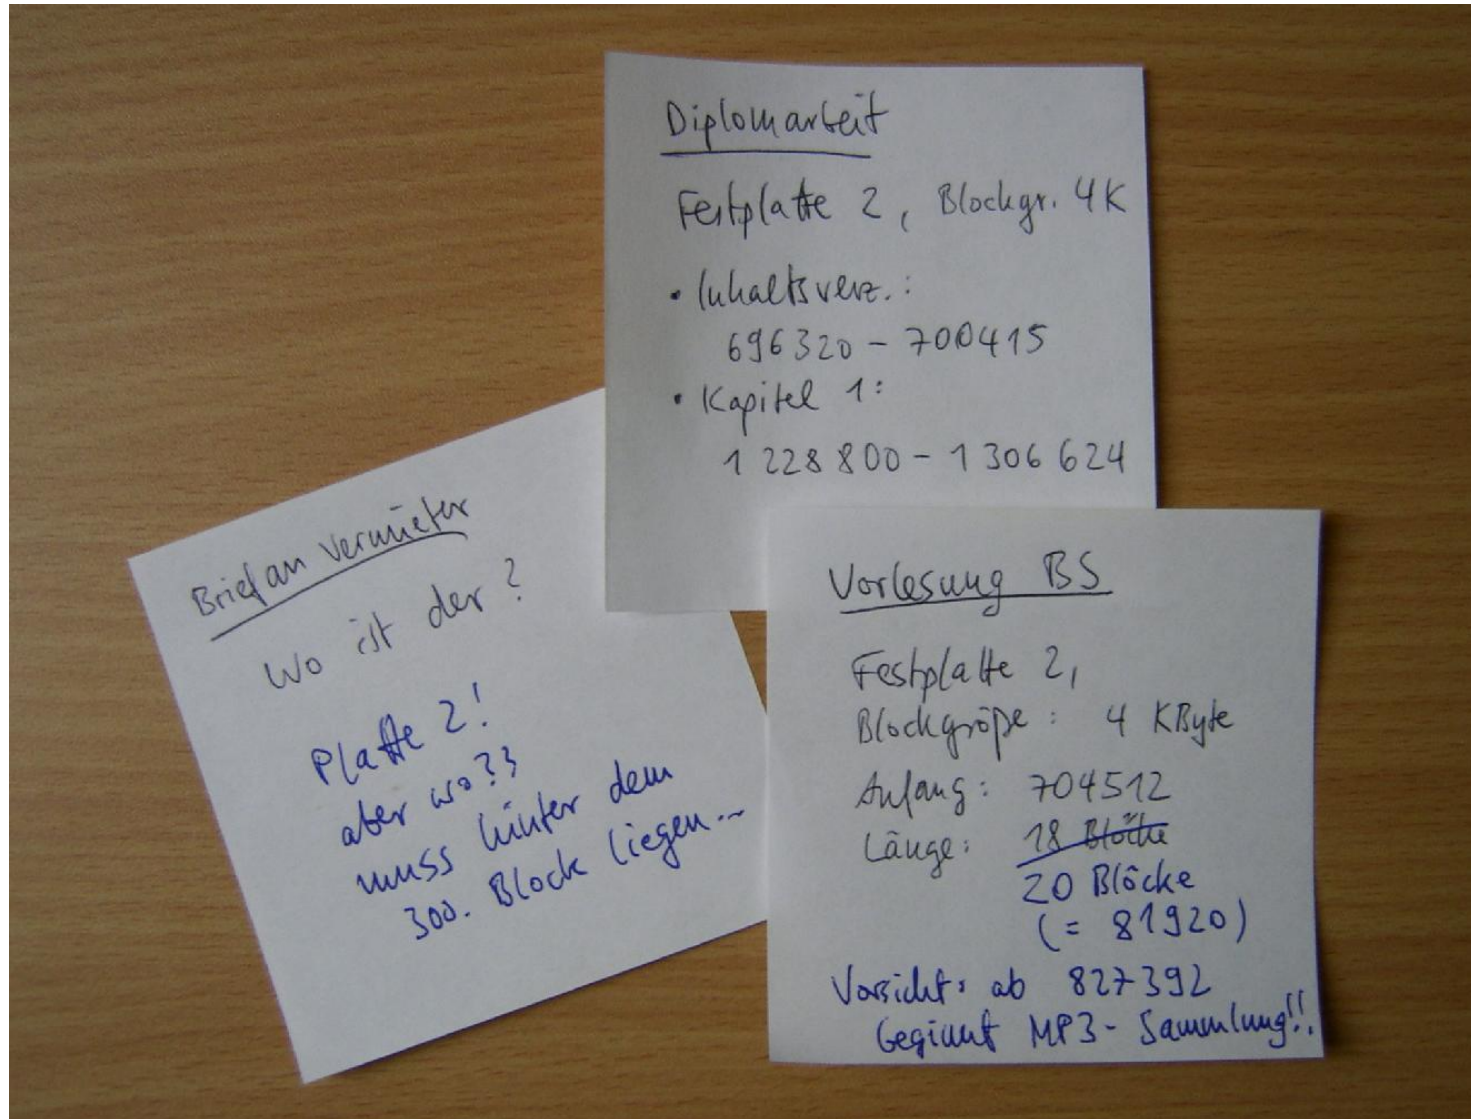 Diplomarbeit
Festplatte 2, Blockgr. 4K
• Inhaltsverz.:
696320 - 700415
• Kapitel 1:
1 228 800 - 1 306 624
Brief an Vermieter
Wo ist der?
Platte 2!
aber wo??
muss hinter dem
300. Block liegen...
Vorlesung BS
Festplatte 2,
Blockgröße: 4 KByte
Anfang: 704512
Länge: 18 Blöcke
20 Blöcke
(= 81920)
Vorsicht: ab 827392
beginnt MP3-Sammlung!!